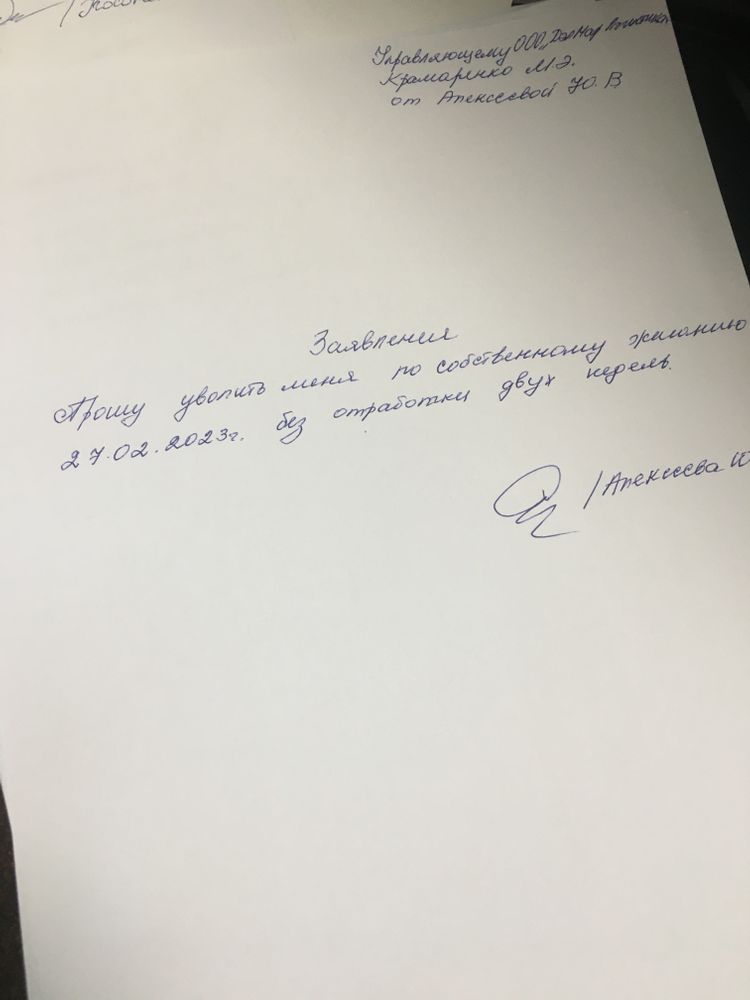 Управляющему ООО "ДэлМар
Крамаренко М.Э.
от Алексеевой Ю.В
Заявления
Прошу уволить меня по собственному желанию
27.02.2023г. без отработки двух недель.
/Алексеева Ю